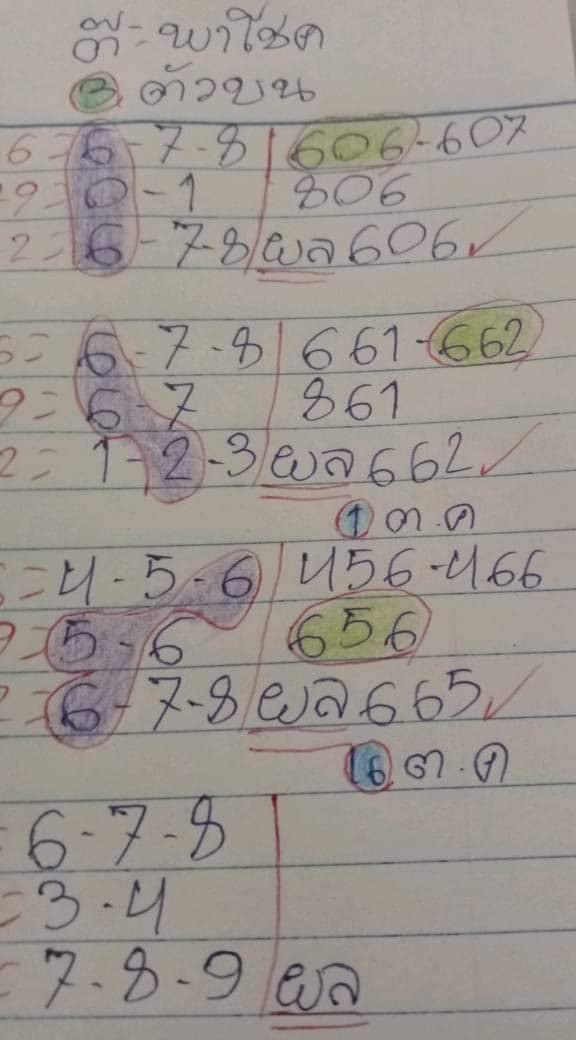 ตี๋-พาโชค
3 ตัวบน
6= 6-7-8 606-607
9= 0-1 806
2= 6-7-8 ผล 606 ✓
6-7-8 661-662
9= 6-7 861
2= 1-2-3 ผล 662 ✓
1 ต.ค
=4-5-6 456-466
5-6 656
=6-7-8 ผล 665 ✓
16 ต.ค
6-7-8
=3-4
7-8-9 ผล